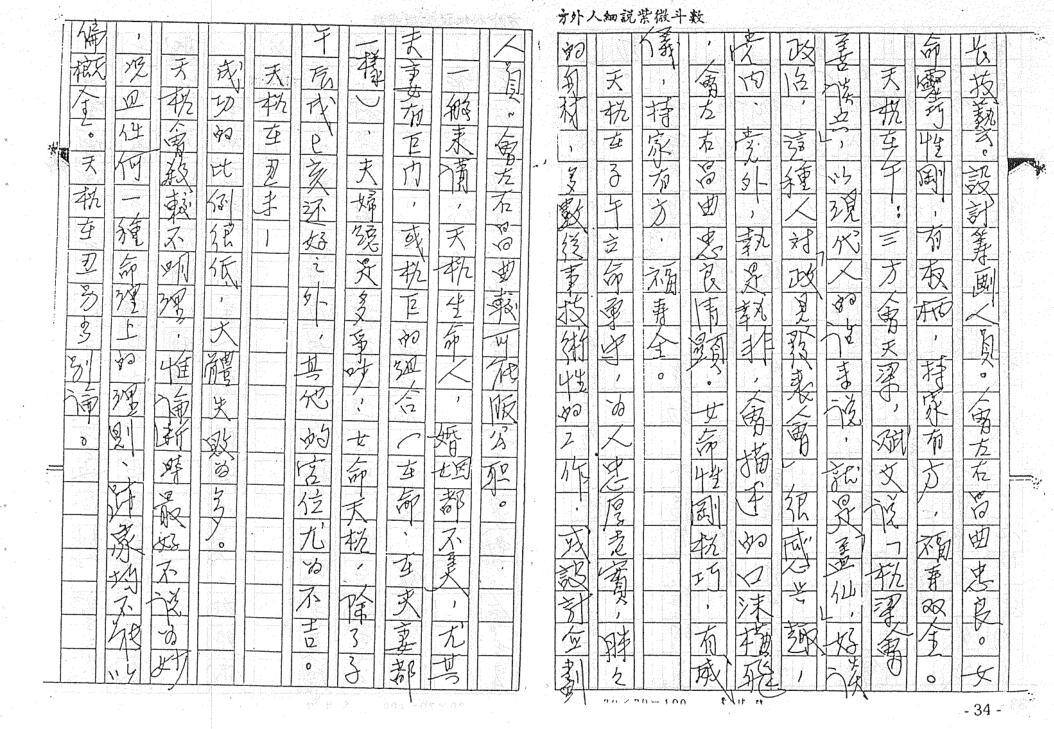 方外人細說紫微斗数
長技藝。設計筹画人員。會左右昌曲忠良。女
命靈巧性剛，有权柄，持家有方，福寿双全。
天机在午：三方會天梁，赋文说「机梁會
善谈兵」，以現代人的性来说，就是「盖仙，好谈
政治，這種人对「政見發表會」很感兴趣，
党内、党外，執是執非，會描述的口沫橫飛
，會左右昌曲忠良清顕。女命性剛机巧，有威
儀，持家有方，福寿全。
天机在子午立命重守，为人忠厚老實，
的身材，多數從事技術性的工作，或設計企劃
人員。會左右昌曲較可能做公职。
一般来講，天机坐命人，婚姻都不美，尤其
夫妻有巨門，或机巨的組合（在命、在夫妻都
一樣），夫婦總是多爭吵，女命天机，除了子
午辰戌巳亥还好之外，其他的宮位尤为不吉。
天机在丑未—
成功的比例很低，大體失敗为多。
天机會 較不明理，惟論斷時最好不说为妙
，况且任何一種命理上的理則，諸家均不能以
偏概全。天机在丑另当别論。
- 34 -